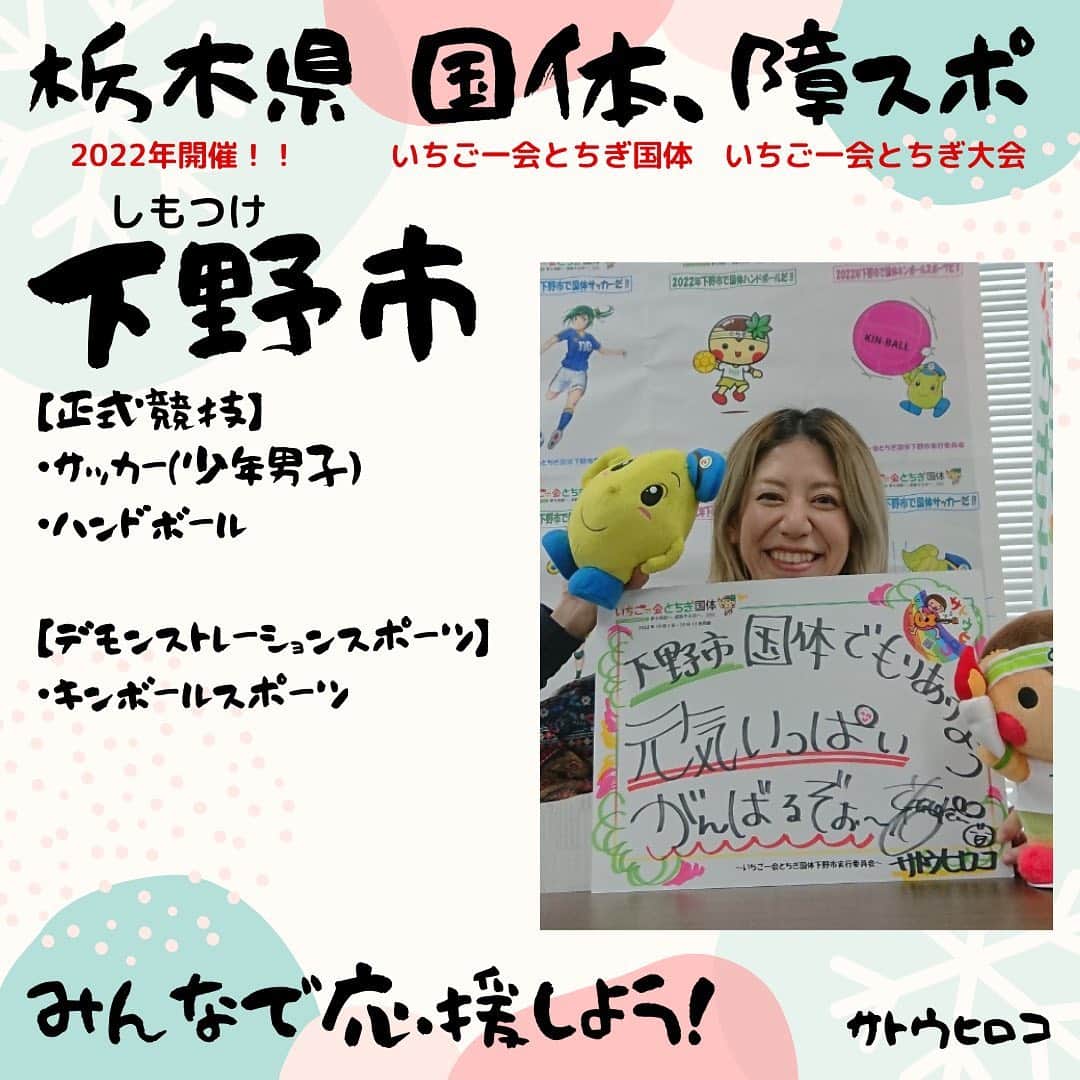 栃木県 国体、障スポ
2022年開催！！ いちご一会とちぎ国体 いちご一会とちぎ大会
しもつけ
下野市
【正式競技】
・サッカー(少年男子)
・ハンドボール
【デモンストレーションスポーツ】
・キンボールスポーツ
2022年下野市で国体ハンドボールだ!!
2022年下野市で国体キンボールスポーツだ!
下野市で国体サッカーだ!!
KIN-BALL
いちご一会とちぎ国体
下野市国体でもりあがろう
元気いっぱい
がんばるぞぉ〜
サトウヒロコ
〜いちご一会とちぎ国体下野市実行委員会〜
みんなで応援しよう!
サトウヒロコ